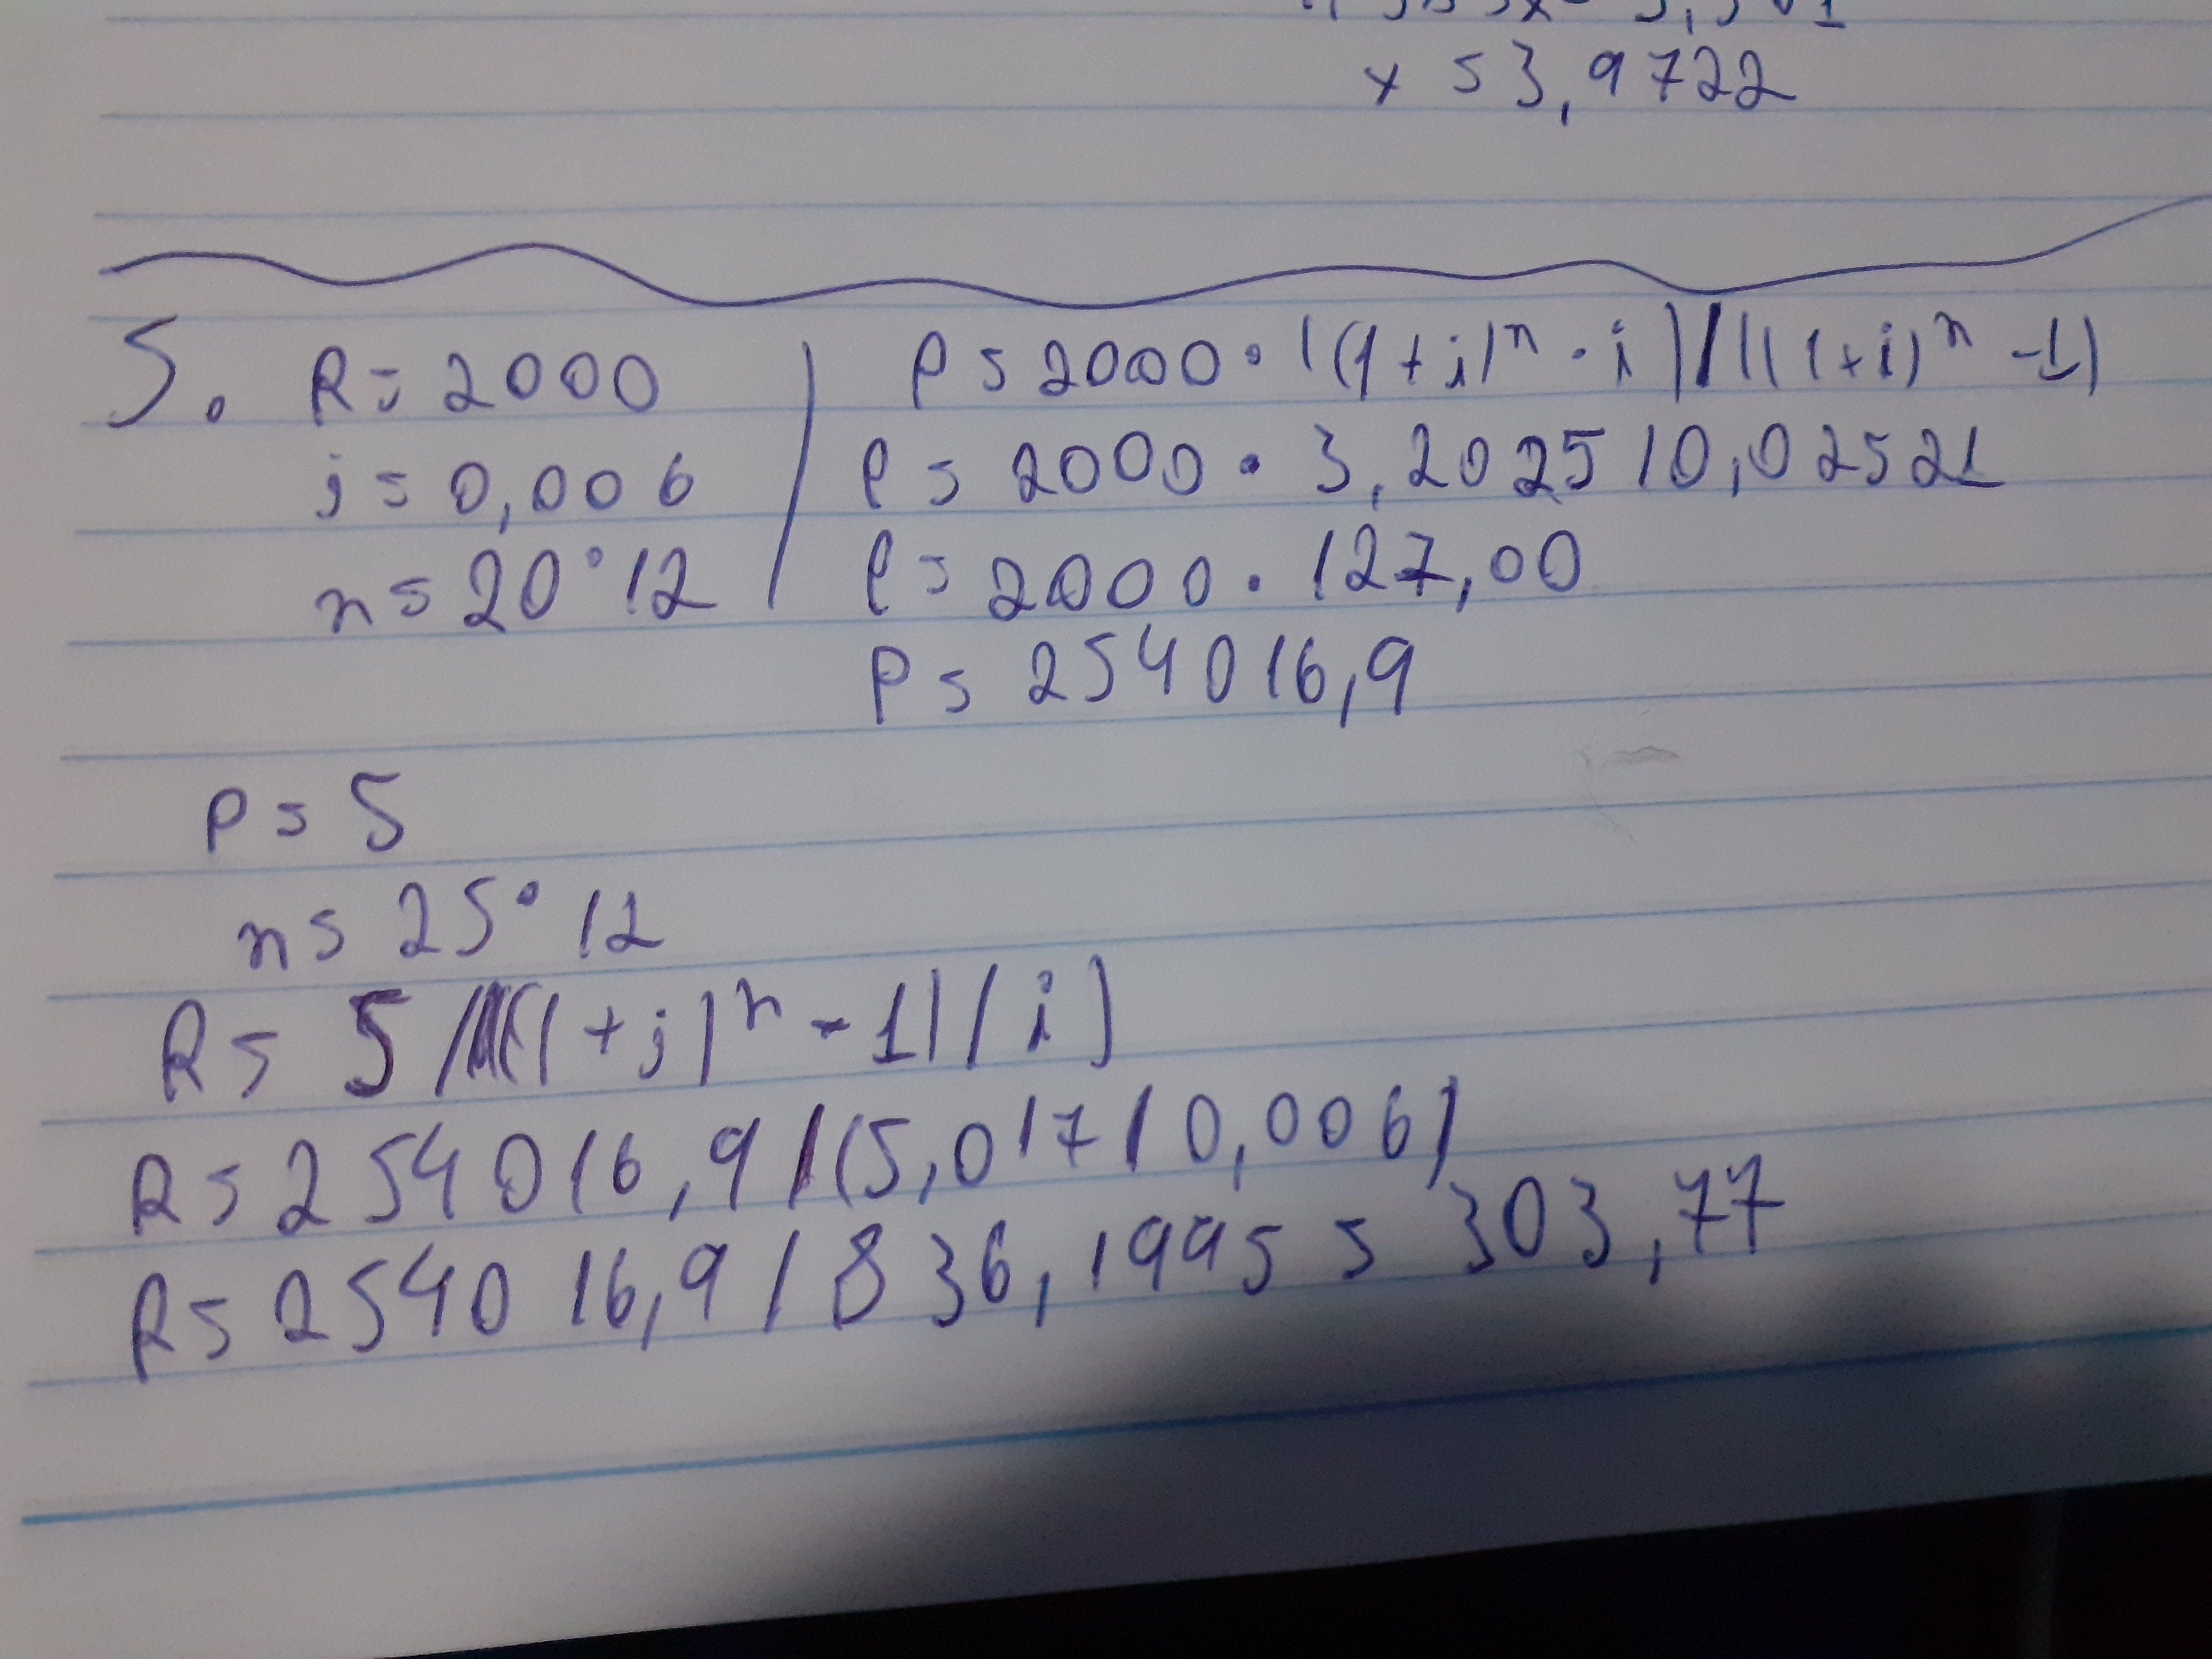 x 53,9722
5. R = 2000
i = 0,006
n = 20 · 12
P = 2000 · ((1+i)^n · i) / (((1+i)^n - 1)
P = 2000 · 3,2025 / 0,02521
P = 2000 · 127,00
P = 254016,9
P = S
n = 25 · 12
R = S / (((1+i)^n - 1) / i)
R = 254016,9 / (5,017 / 0,006)
R = 254016,9 / 836,1995 = 303,77